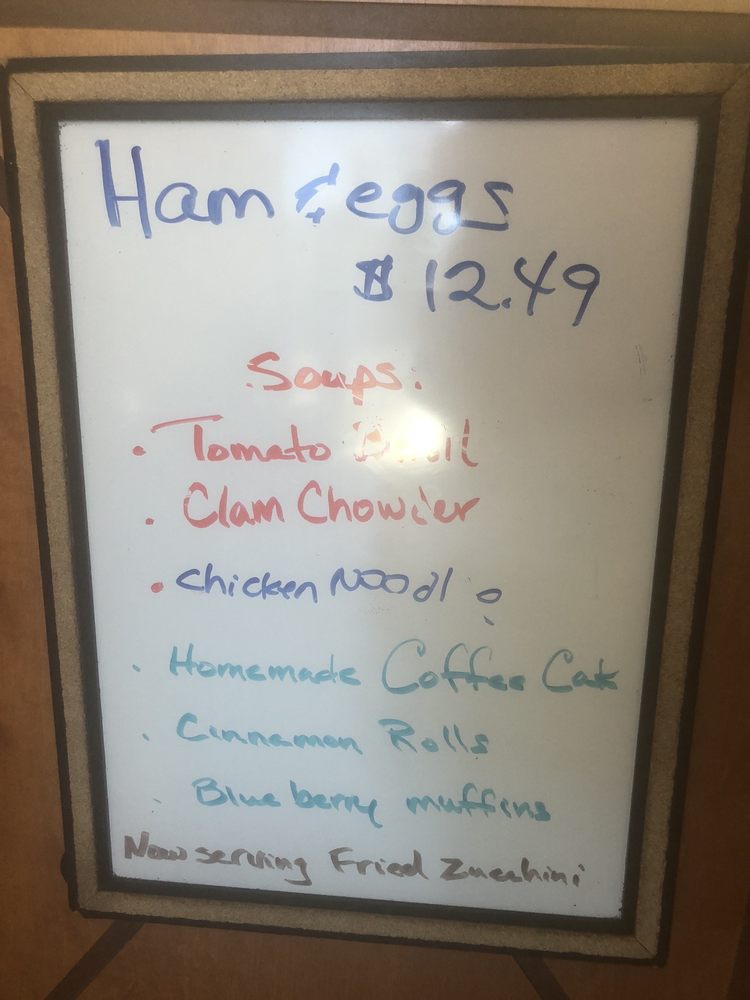 Ham & eggs
$12.49
Soups:
• Tomato Basil
• Clam Chowder
• Chicken Noodle
• Homemade Coffee Cake
• Cinnamon Rolls
• Blueberry muffins
Now serving Fried Zucchini